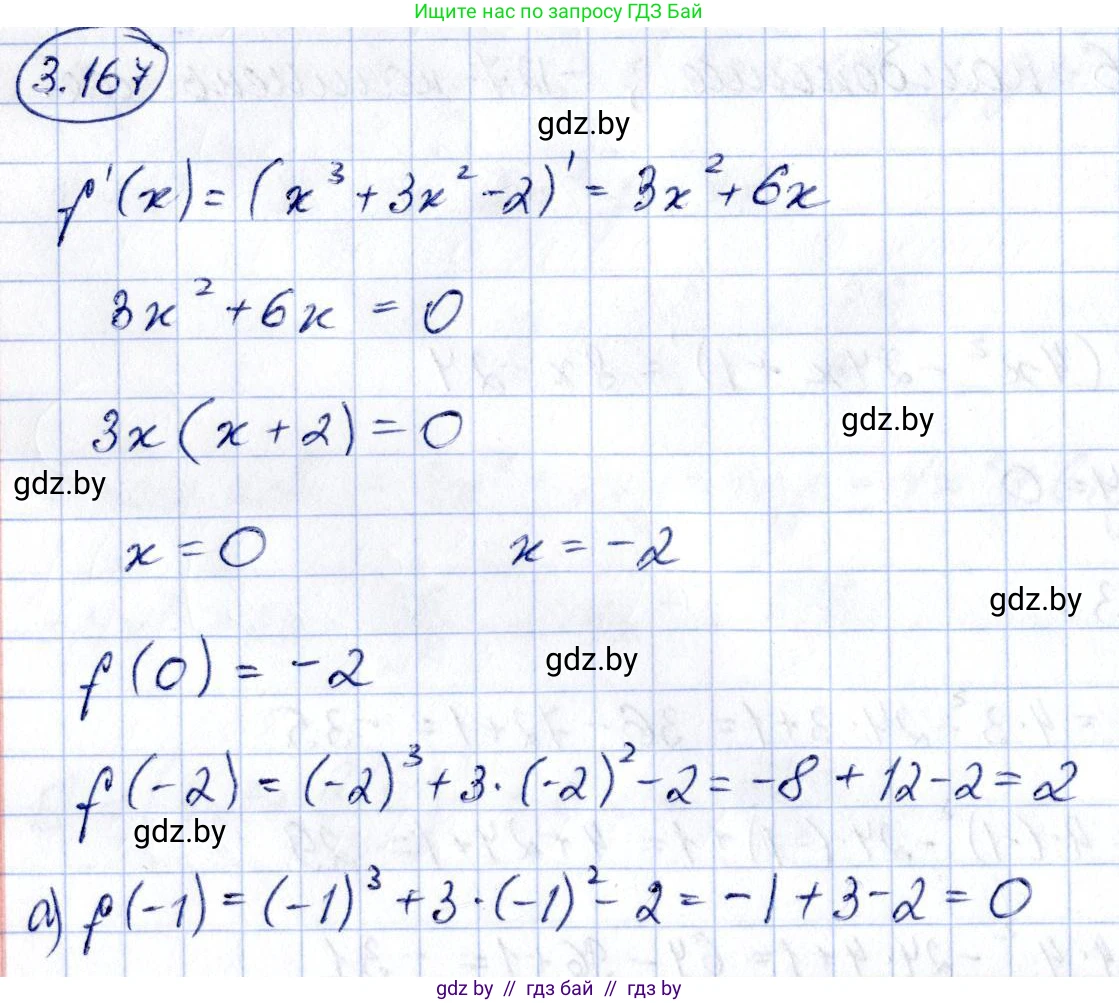 Ищите нас по запросу ГДЗ Бай
3.167
gdz.by
f'(x) = (x³ + 3x² - 2)' = 3x² + 6x
3x² + 6x = 0
3x(x + 2) = 0
gdz.by
gdz.by
x = 0 x = -2
gdz.by
f(0) = -2
gdz.by
f(-2) = (-2)³ + 3·(-2)² - 2 = -8 + 12 - 2 = 2
gdz.by
а) f(-1) = (-1)³ + 3·(-1)² - 2 = -1 + 3 - 2 = 0
gdz.by // гдз бай // гдз by